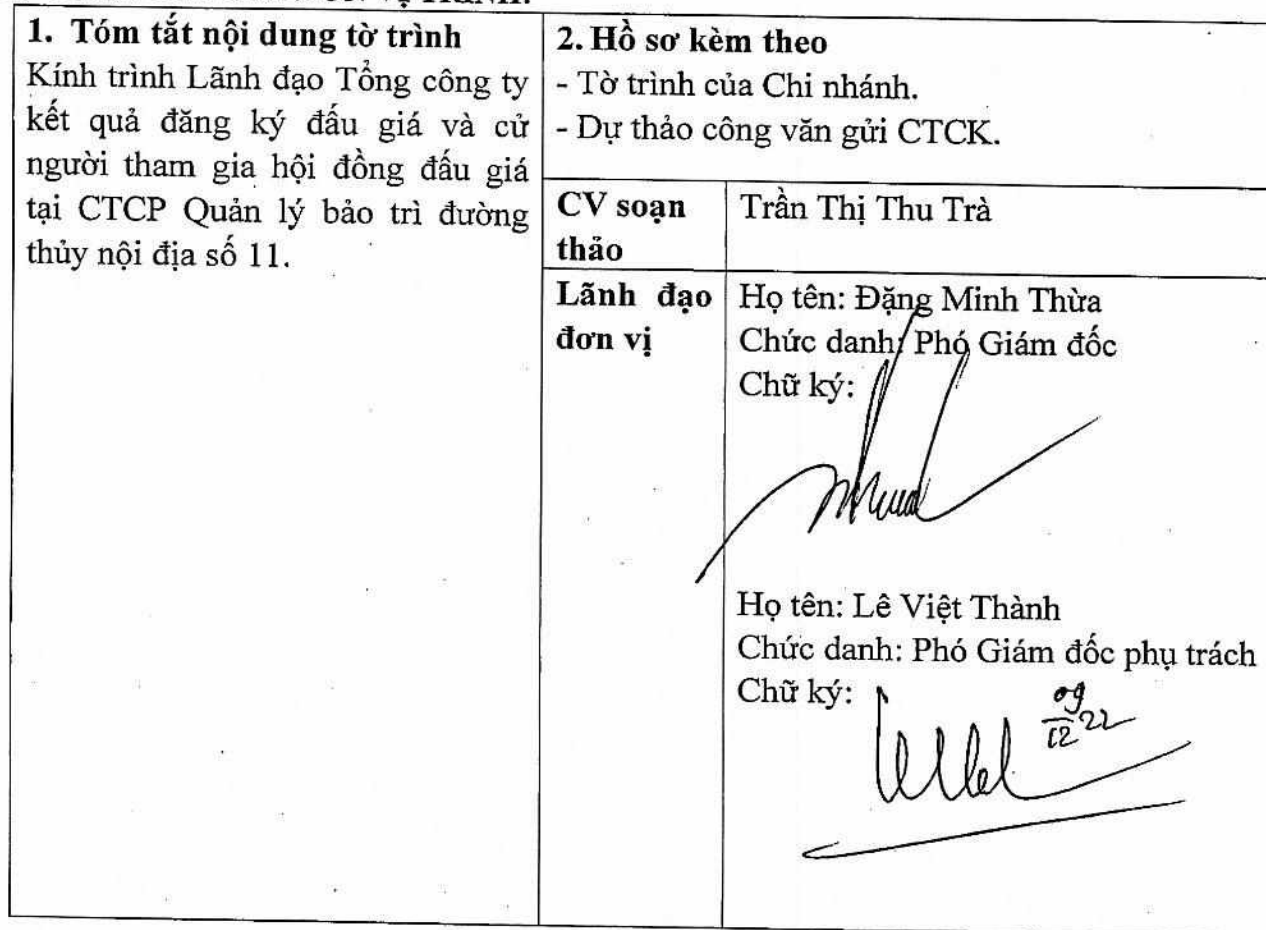 1. Tóm tắt nội dung tờ trình
Kính trình Lãnh đạo Tổng công ty
kết quả đăng ký đấu giá và cử
người tham gia hội đồng đấu giá
tại CTCP Quản lý bảo trì đường
thủy nội địa số 11.
2. Hồ sơ kèm theo
- Tờ trình của Chi nhánh.
- Dự thảo công văn gửi CTCK.
CV soạn
thảo
Trần Thị Thu Trà
Lãnh đạo
đơn vị
Họ tên: Đặng Minh Thừa
Chức danh: Phó Giám đốc
Chữ ký:
Họ tên: Lê Việt Thành
Chức danh: Phó Giám đốc phụ trách
Chữ ký:
09
12 22